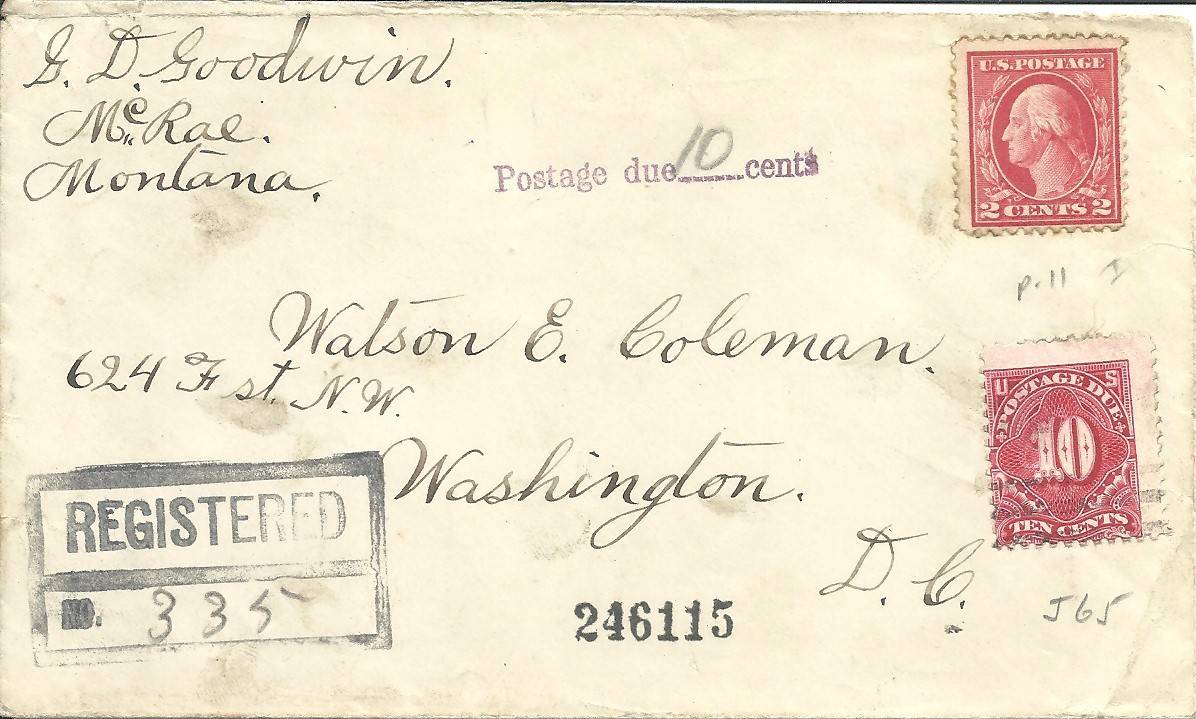 G. D. Goodwin.
McRae.
Montana.
Postage due 10 cents
U.S. POSTAGE
2 CENTS 2
P.11 I
Watson E. Coleman.
624 F st. N.W.
Washington.
D. C.
U S
POSTAGE DUE
10
TEN CENTS
J65
REGISTERED
NO. 335
246115